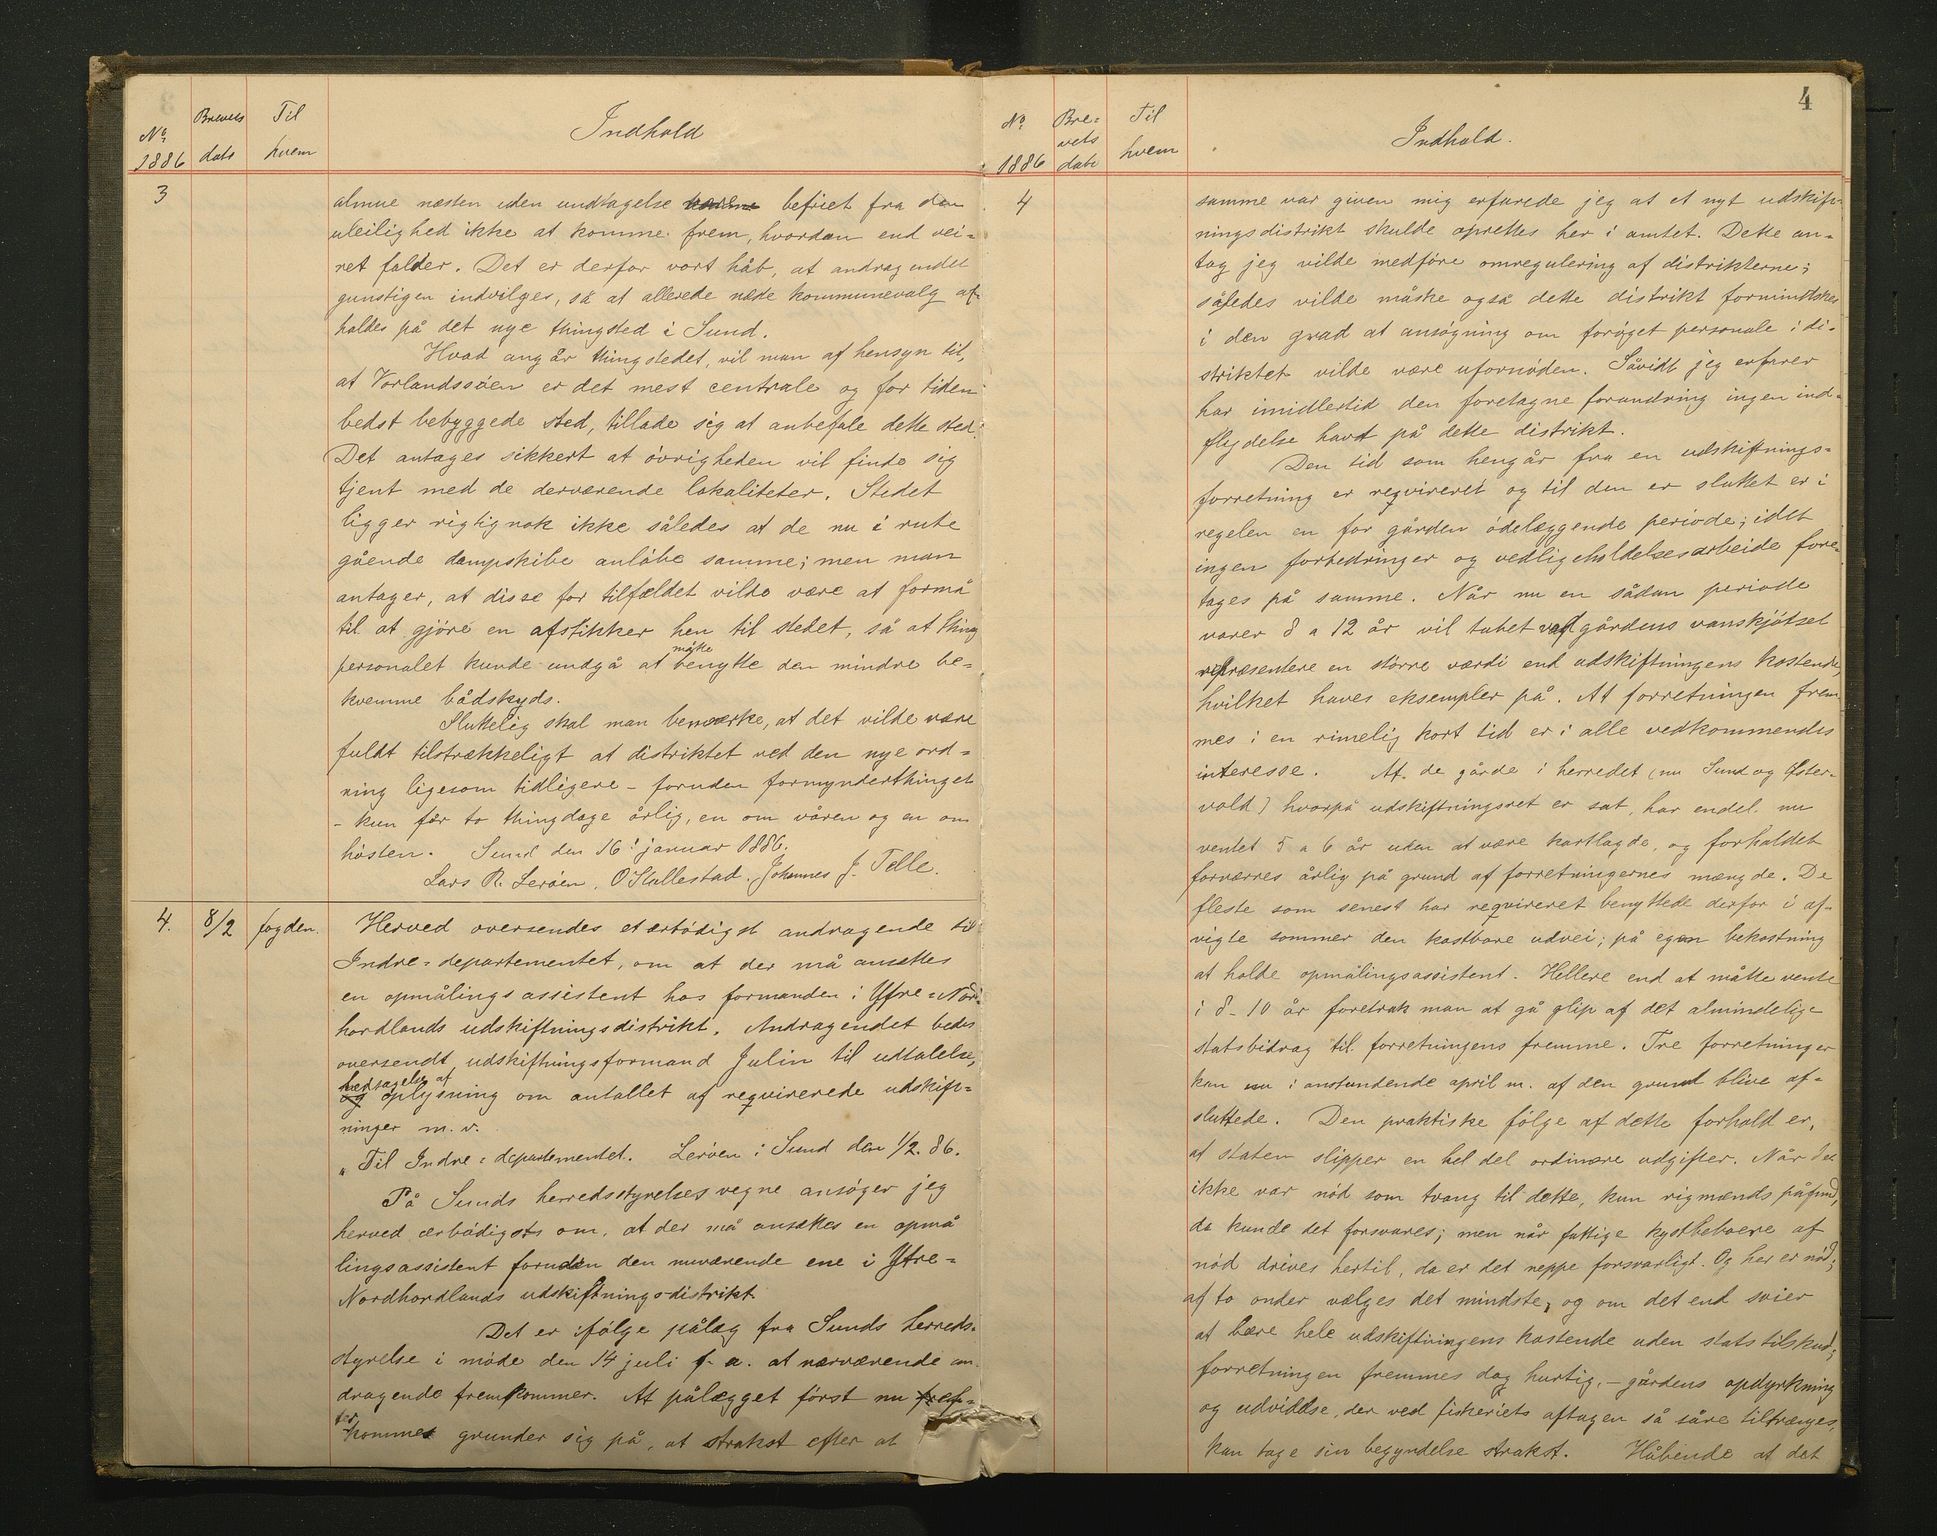 No. 1886
Brevets dato
Til hvem
Indhold
3
almue næsten uden undtagelse befriet fra den
uleilighed ikke at komme frem, hvordan end vei-
ret falder. Det er derfor vort håb, at andragendet
gunstigen indvilges, så at allerede næde kommunevalg af-
holdes på det nye thingsted i Sund.
Hvad angår thingstedet, vil man af hensyn til,
at Vorlandssöen er det mest centrale og for tiden
bedst bebyggede sted, tillade sig at anbefale dette sted.
Det antages sikkert at övrigheden vil finde sig
tjent med de derværende lokaliteter. Stedet
ligger rigtignok ikke således at de nu i rute
gående dampskibe anlöbe samme; men man
antager, at disse for tilfældet vilde være at formå
til at gjöre en afstikker hen til stedet, så at thing
personalet kunde undgå at måtte benytte den mindre be-
kvemme bådskyds.
Slutelig skal man bemærke, at det vilde være
fuldt tilstrækkeligt at distriktet ved den nye ord-
ning ligesom tidligere - foruden formynderthinget
- kun får to thingdage årlig, en om våren og en om
hösten. Sund den 16. januar 1886.
Lars R. Leröen. O Stallestad. Johannes J. Telle.
4. 8/2 fogden.
Herved oversendes et ærbödigst andragende til
Indre-departementet, om at der må ansættes
en opmålingsassistent hos formanden i Ytre-Nor-
hordlands udskiftningsdistrikt. Andragendet bedes
oversendt udskiftningsformand Julin til udtalelse,
ledsagelse af
og oplysning om antallet af reqvirerede udskift-
ninger m. v.
"Til Indre-departementet. Leröen i Sund den 1/2. 86.
På Sunds herredsstyrelses vegne ansöger jeg
herved ærbödigst om, at der må ansættes en opmå
lingsassistent foruden den nuværende ene i Ytre-
Nordhordlands udskiftnings-distrikt.
Det er ifölge pålæg fra Sunds herreds-
styrelse i möde den 14 juli f. a. at nærværende an-
dragende fremkommer. At pålægget först nu ef-
ter kommes grunder sig på, at strakst efter at
4
No. 1886
Brevets dato
Til hvem
Indhold.
4
samme var given mig erfarede jeg at et nyt udskift-
ningsdistrikt skulde oprettes her i amtet. Dette an-
tog jeg vilde medföre omregulering af distrikterne;
således vilde måske også dette distrikt formindskes
i den grad at ansögning om foröget personale i di-
striktet vilde være ufornöden. Såvidt jeg erfarer
har imidlertid den foretagne forandring ingen ind-
flydelse havt på dette distrikt.
Den tid som hengår fra en udskiftnings-
forretning er reqvireret og til den er sluttet er i
regelen en for gården ödelæggende periode; idet
ingen forbedringer og vedligeholdelsesarbeide fore-
tages på samme. Når nu en sådan periode
varer 8 a 12 år vil tabet ved gårdens vanskjötsel
repræsentere en större værdi end udskiftningens kostende,
hvilket haves eksempler på. At forretningen frem
mes i en rimelig kort tid er i alle vedkommendes
interesse. Af de gårde i herredet (nu Sund og Öster-
vold) hvorpå udskiftningsret er sat, har endel nu
ventet 5 a 6 år uden at være kartlagde, og forholdet
forværres årlig på grund af forretningernes mængde. De
fleste som senest har reqvireret benyttede derfor i af-
vigte sommer den kostbare udvei; på egen bekostning
at holde opmålingsassistent. Hellere end at måtte vente
i 8-10 år foretrak man at gå glip af det almindelige
statsbidrag til forretningens fremme. Tre forretninger
kan nu i anstundende april m. af den grund blive af-
sluttede. Den praktiske fölge af dette forhold er,
at staten slipper en hel del ordinære udgifter. Når det
ikke var nöd som tvang til dette, kun rigmænds påfund,
da kunde det forsvares; men når fattige kystbeboere af
nöd drives hertil, da er det neppe forsvarligt. Og her er nöd;
af to onder vælges det mindste, og om det end svier
at bære hele udskiftningens kostende uden statstilskud;
forretningen fremmes dog hurtig, - gårdens opdyrkning
og udvidelse, der ved fiskeriets aftagen så såre tiltrænges,
kan tage sin begyndelse strakst. Håbende at det